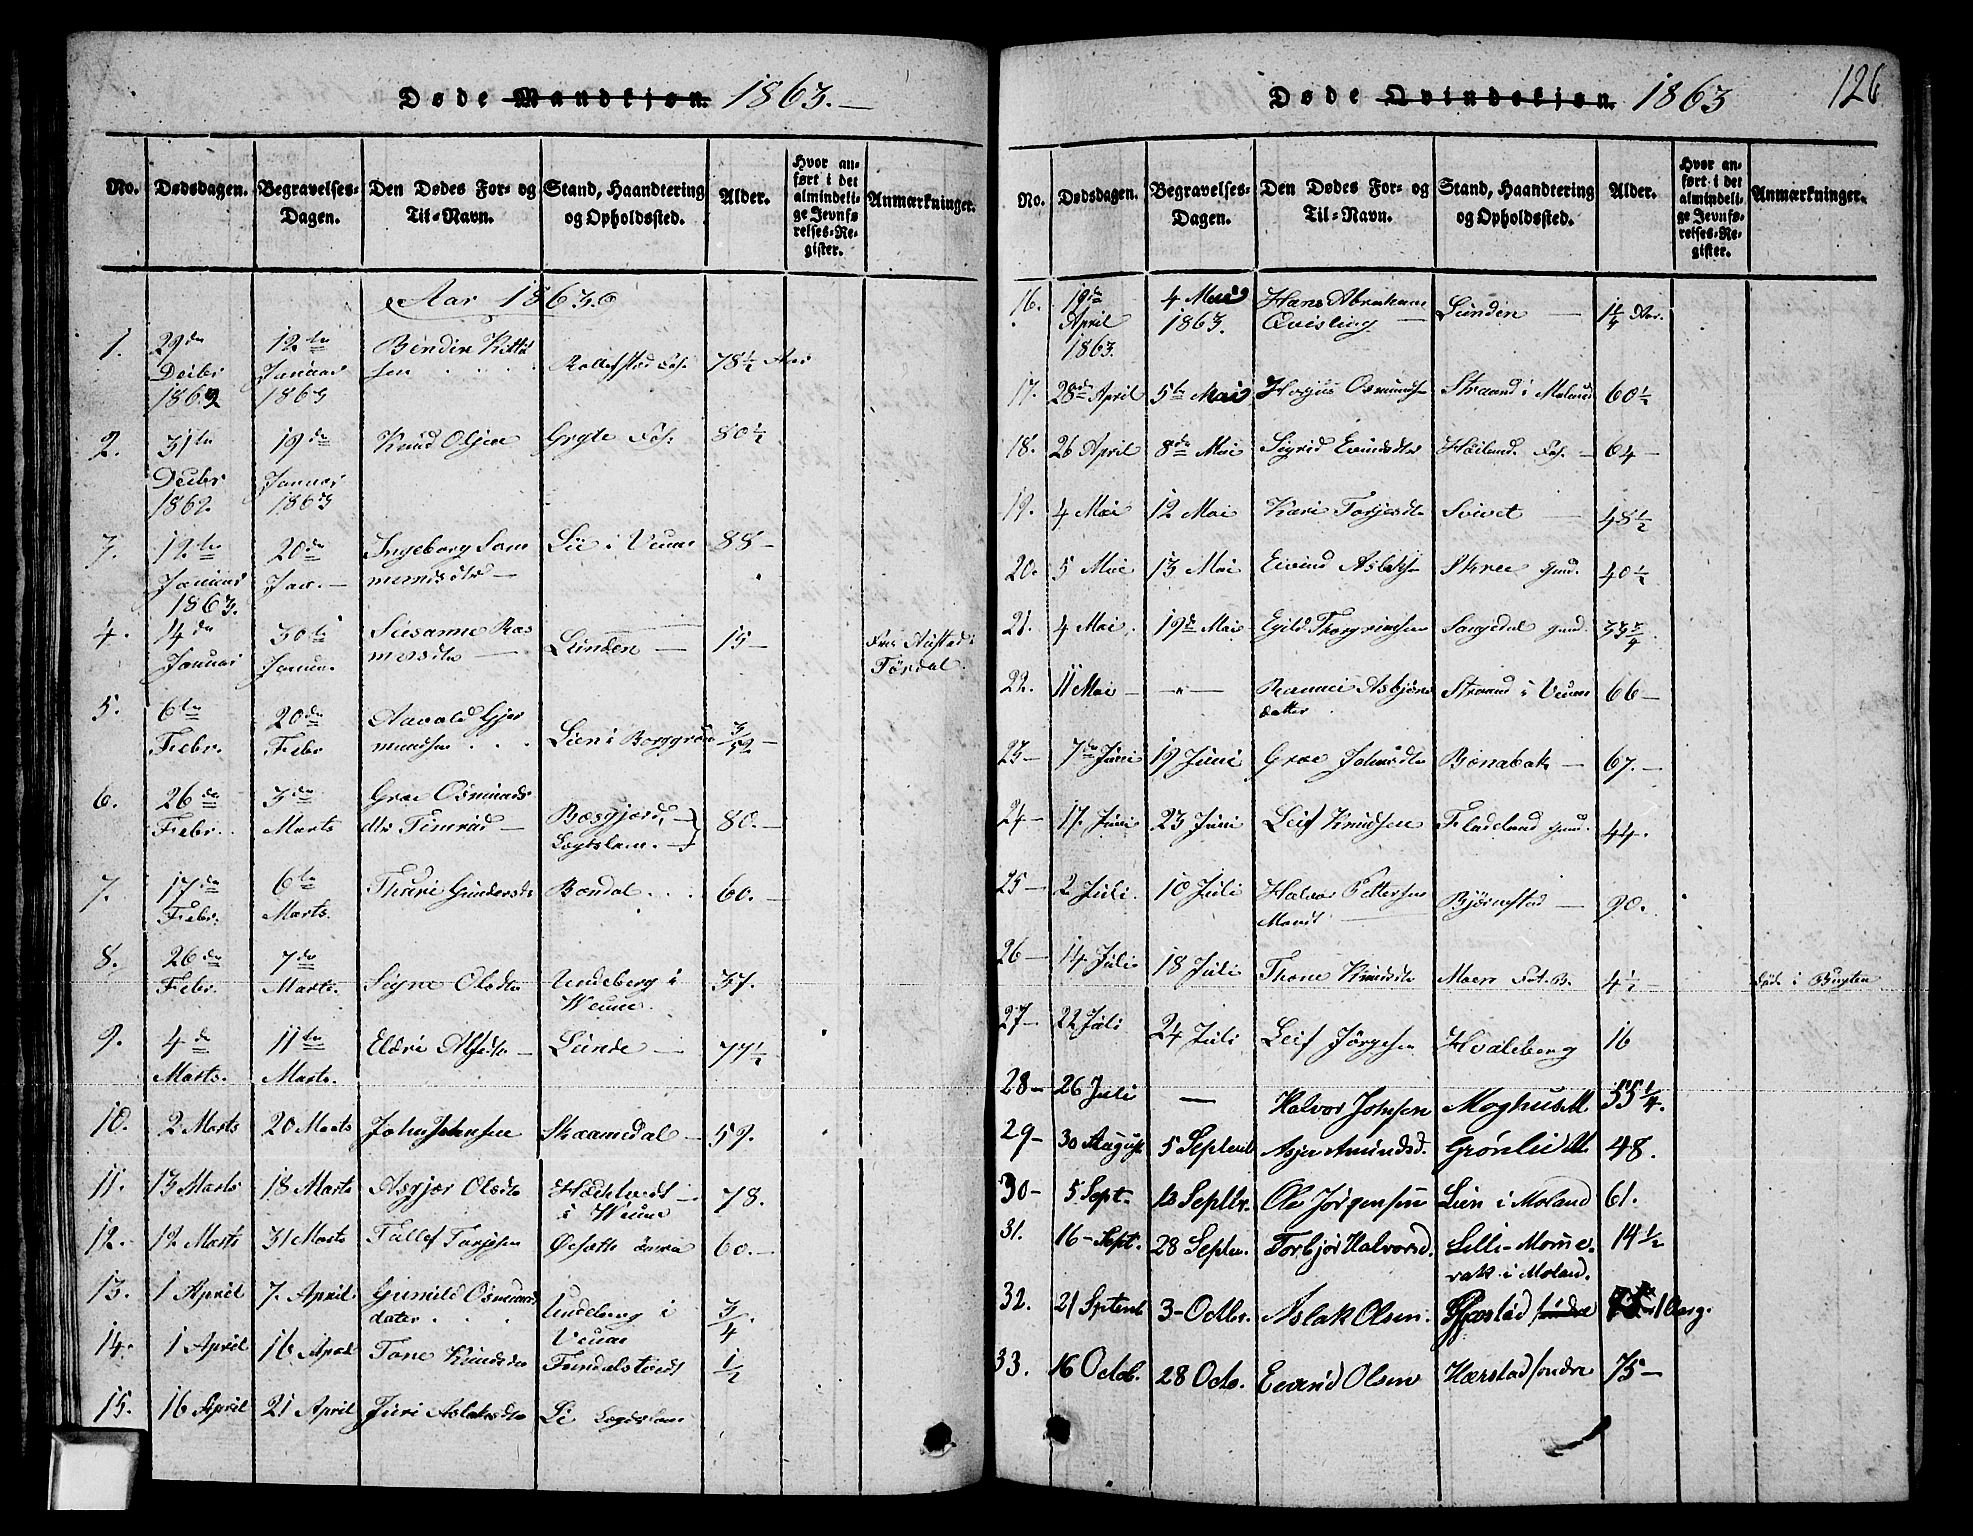 Døde Mandkjøn. 1863.—
No. Dødsdagen. Begravelses-Dagen. Den Dødes For- og Til-Navn. Stand, Haandtering og Opholdssted. Alder. Hvor anført i det almindelige Jevnførelses-Register. Anmærkninger.
Aar 1863.
1. 29de Decbr 1862 12te Januar 1863 78½ Aar
2. 31te Decbr 1862. 19de Januar 1863 Knud Olsen Grgte Fos. 80½
3. 12te Januar 1863. 20de Jan.— Ingeborg i Veum 88—
4. 14de Januar 30te Januar Susanne Rasmusdtr— Lunden— 15— Tørdal.
5. 6te Febr. 20de Febr Aavald Gjermundsen Lien i Borggrøn 3/52—
6. 26de Febr. 3de Marts Groe Osmundsdtr Timrud— Bøsgjord, Løgtslam.— 80.—
7. 17de Febr. 6te Marts. Thuri Gundersdtr Bøndal 60.—
8. 26de Febr. 7de Marts. Signe Olsdtr Undeberg i Weum. 37.
9. 4de Marts. 11te Marts. Eldri Lunde— 77½
10. 2 Marts 20 Marts John Johnsen Skaamdal— 59.
11. 13 Marts 18 Marts Asgjær Olsdtr i Weum 78.
12. 12 Marts 31 Marts Tallef Torjesen 60.—
13. 1 April 7. April Gunild Osmundsdater Undeberg i Veum 3/4
14. 1 April 16 April Tone Knudsdtr 1/2
15. 16 April 21 April Juri Aslaksdtr Li
Døde Qvindekjøn. 1863 126
No. Dødsdagen. Begravelses-Dagen. Den Dødes For- og Til-Navn. Stand, Haandtering og Opholdssted. Alder. Hvor anført i det almindelige Jevnførelses-Register. Anmærkninger.
16. 19de April 1863. 4 Mai 1863. Hans Abraham Qvisling— Lunden— Aar.
17. 28de April 5te Mai Osmundsen Straand i Moland 60½
18. 26 April 8de Mai Sigrid Høiland. Fos.— 64—
19. 4 Mai 12 Mai Kari Torjesdtr Svivet— 48½
20. 5 Mai 13 Mai Eivind Aslaksen Skree 40½
21. 4 Mai. 19de Mai Egild Thorgrimsen Songedal 33¾
22. 11 Mai— —"— Asbjørnsdatter Strand i Veum 66—
23— 7de Juni 19 Juni Groe Johnsdtr Bønabak— 67.—
24— 17. Juni 23 Juni Leif Knudsen Fladeland 44.
25— 2 Juli. 10 Juli Halvor Pettersen Mandt Bjørnstad— 90.
26— 14 Juli 18 Juli Thone Knudsdtr Moen 4½— Døde i Bugten
27— 22 Juli 24 Juli Leif Jørgesen Hvaleberg 16
28— 26 Juli — Halvor Johnsen Moghus M 55¼.
29— 30 August 5 Septemb Amundsd. Grønlie M 48.
30— 5 Sept. 13 Septbr. Ole Jørgensen Lien i Moland 61.
31. 16—Sept. 28 Septbr. Torbjør Halvorsd. Lille-Mommerak i Moland. 14½
32. 21 Septemb 3—Octbr. Aslak Olsen. søndre
33. 16 Octob. 28 Octo. Eivind Olsen Hærstad søndre 75—